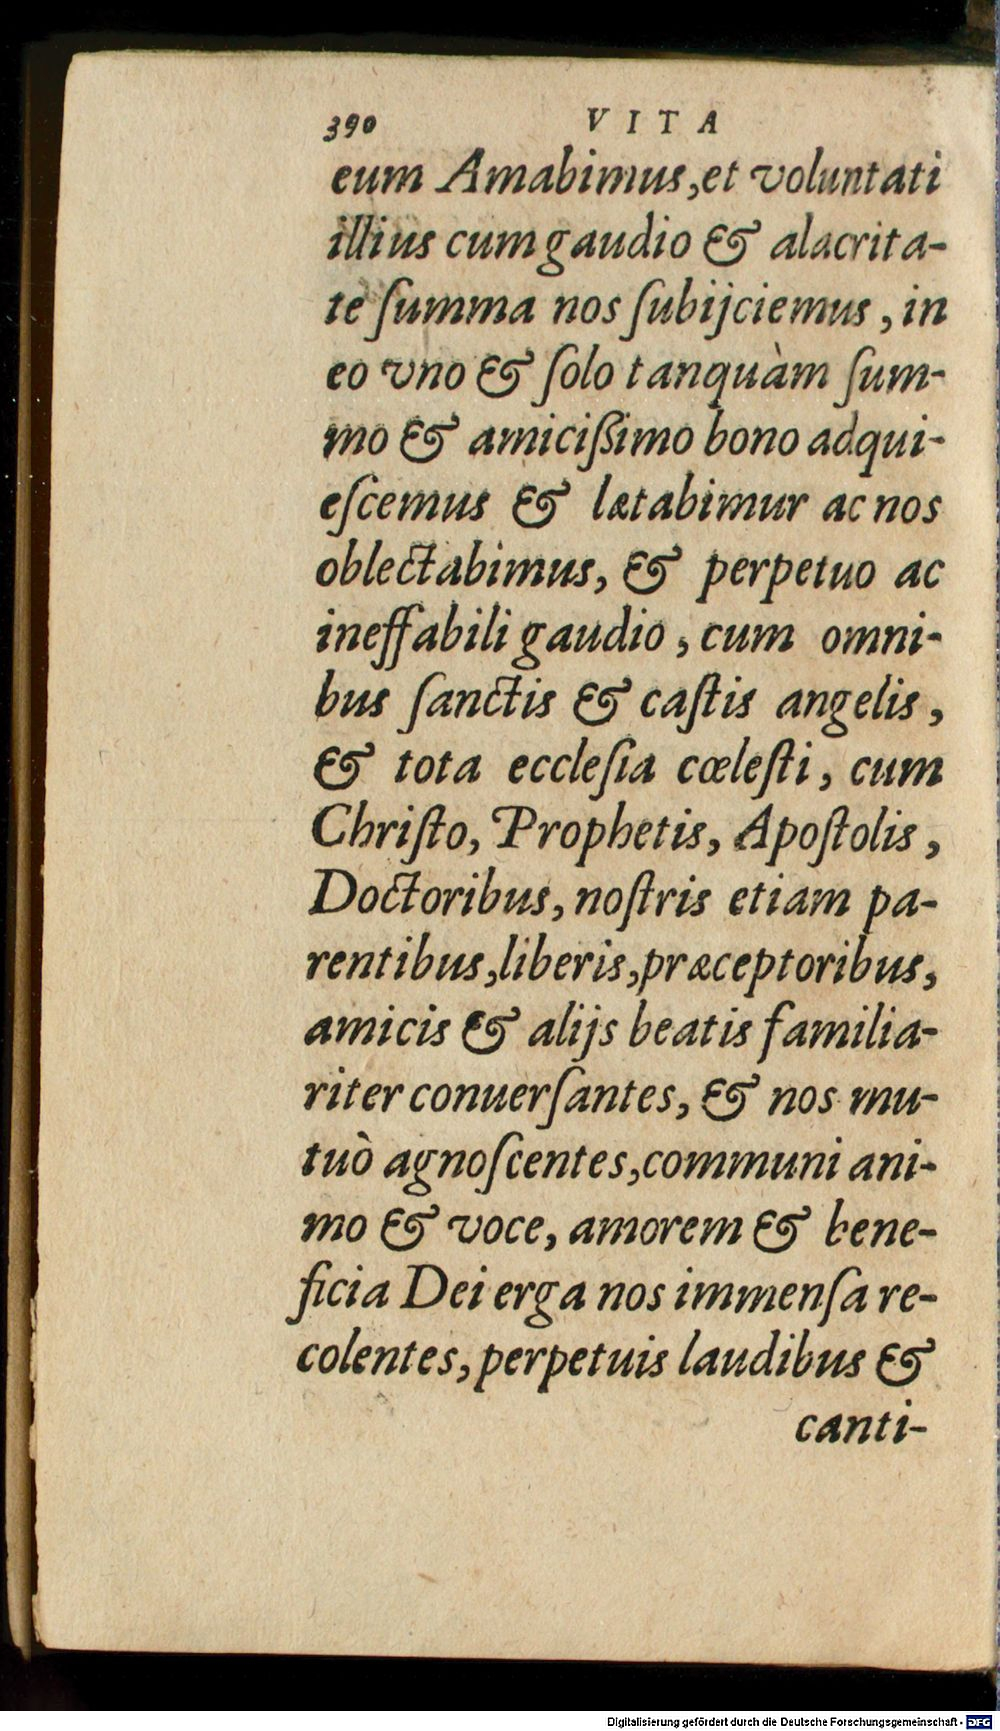 390 VITA
eum Amabimus, et voluntati
illius cum gaudio & alacrita-
te ſumma nos ſubijciemus, in
eo vno & ſolo tanquàm ſum-
mo & amicißimo bono adqui-
eſcemus & lætabimur ac nos
oblectabimus, & perpetuo ac
ineffabili gaudio, cum omni-
bus ſanctis & caſtis angelis,
& tota eccleſia cœleſti, cum
Chriſto, Prophetis, Apoſtolis,
Doctoribus, noſtris etiam pa-
rentibus, liberis, præceptoribus,
amicis & alijs beatis familia-
riter conuerſantes, & nos mu-
tuò agnoſcentes, communi ani-
mo & voce, amorem & bene-
ficia Dei erga nos immenſa re-
colentes, perpetuis laudibus &
canti-
Digitalisierung gefördert durch die Deutsche Forschungsgemeinschaft - DFG